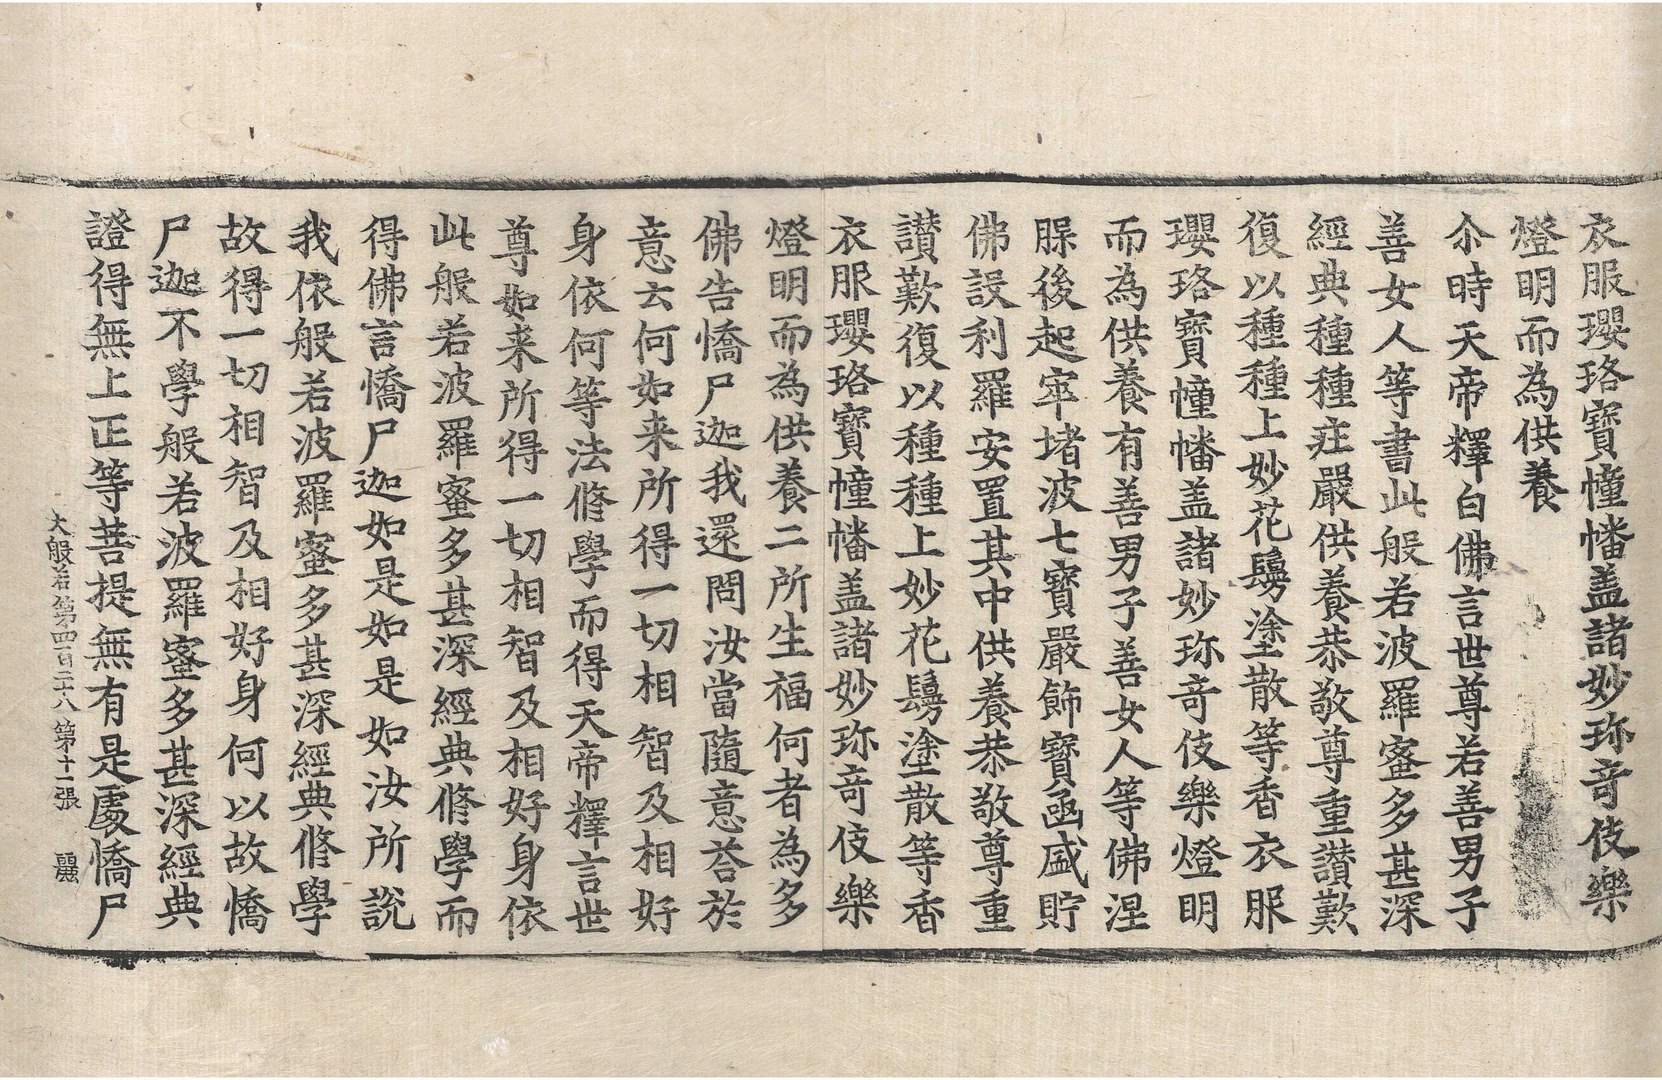 衣服瓔珞寶幢幡盖諸妙珎竒伎樂
燈明而為供養
尒時天帝釋白佛言世尊若善男子
善女人等書此般若波羅蜜多甚深
經典種種莊嚴供養恭敬尊重讃歎
復以種種上妙花鬘塗散等香衣服
瓔珞寶幢幡盖諸妙珎竒伎樂燈明
而為供養有善男子善女人等佛涅
槃後起窣堵波七寶嚴飾寶函盛貯
佛設利羅安置其中供養恭敬尊重
讃歎復以種種上妙花鬘塗散等香
衣服瓔珞寶幢幡盖諸妙珎竒伎樂
燈明而為供養二所生福何者為多
佛告憍尸迦我還問汝當隨意荅於
意云何如来所得一切相智及相好
身依何等法修學而得天帝釋言世
尊如来所得一切相智及相好身依
此般若波羅蜜多甚深經典修學而
得佛言憍尸迦如是如是如汝所說
我依般若波羅蜜多甚深經典修學
故得一切相智及相好身何以故憍
尸迦不學般若波羅蜜多甚深經典
證得無上正等菩提無有是處憍尸
大般若第四百二十八 第十一張 麗